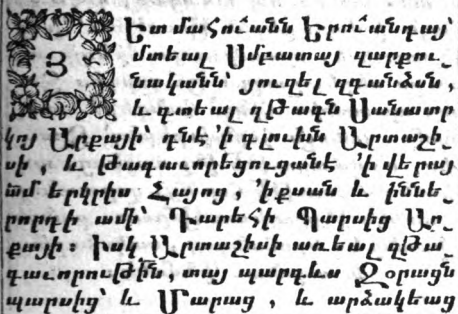 Յետ մահու՟անն Երու՟անդայ՝
մտեալ Սմբատայ զարքու֊
նականն՝ յուզել զգանձսն,
և գտեալ զթագն Սանատր
կոյ Արքայի՝ դնէ ՚ի գլուխն Արտաշի֊
սի, և թագաւորեցուցանէ ՚ի վերայ
ա՟մ երկրիս Հայոց, ՚ի քսան և իննե֊
րորդի ամի՝ Դարեհի Պարսից Ար֊
քայի։ Իսկ Արտաշիսի առեալ զթա֊
գաւորութի՟ն, տայ պարգևս Զօրացն
պարսից՝ և Մարաց, և արձակեաց